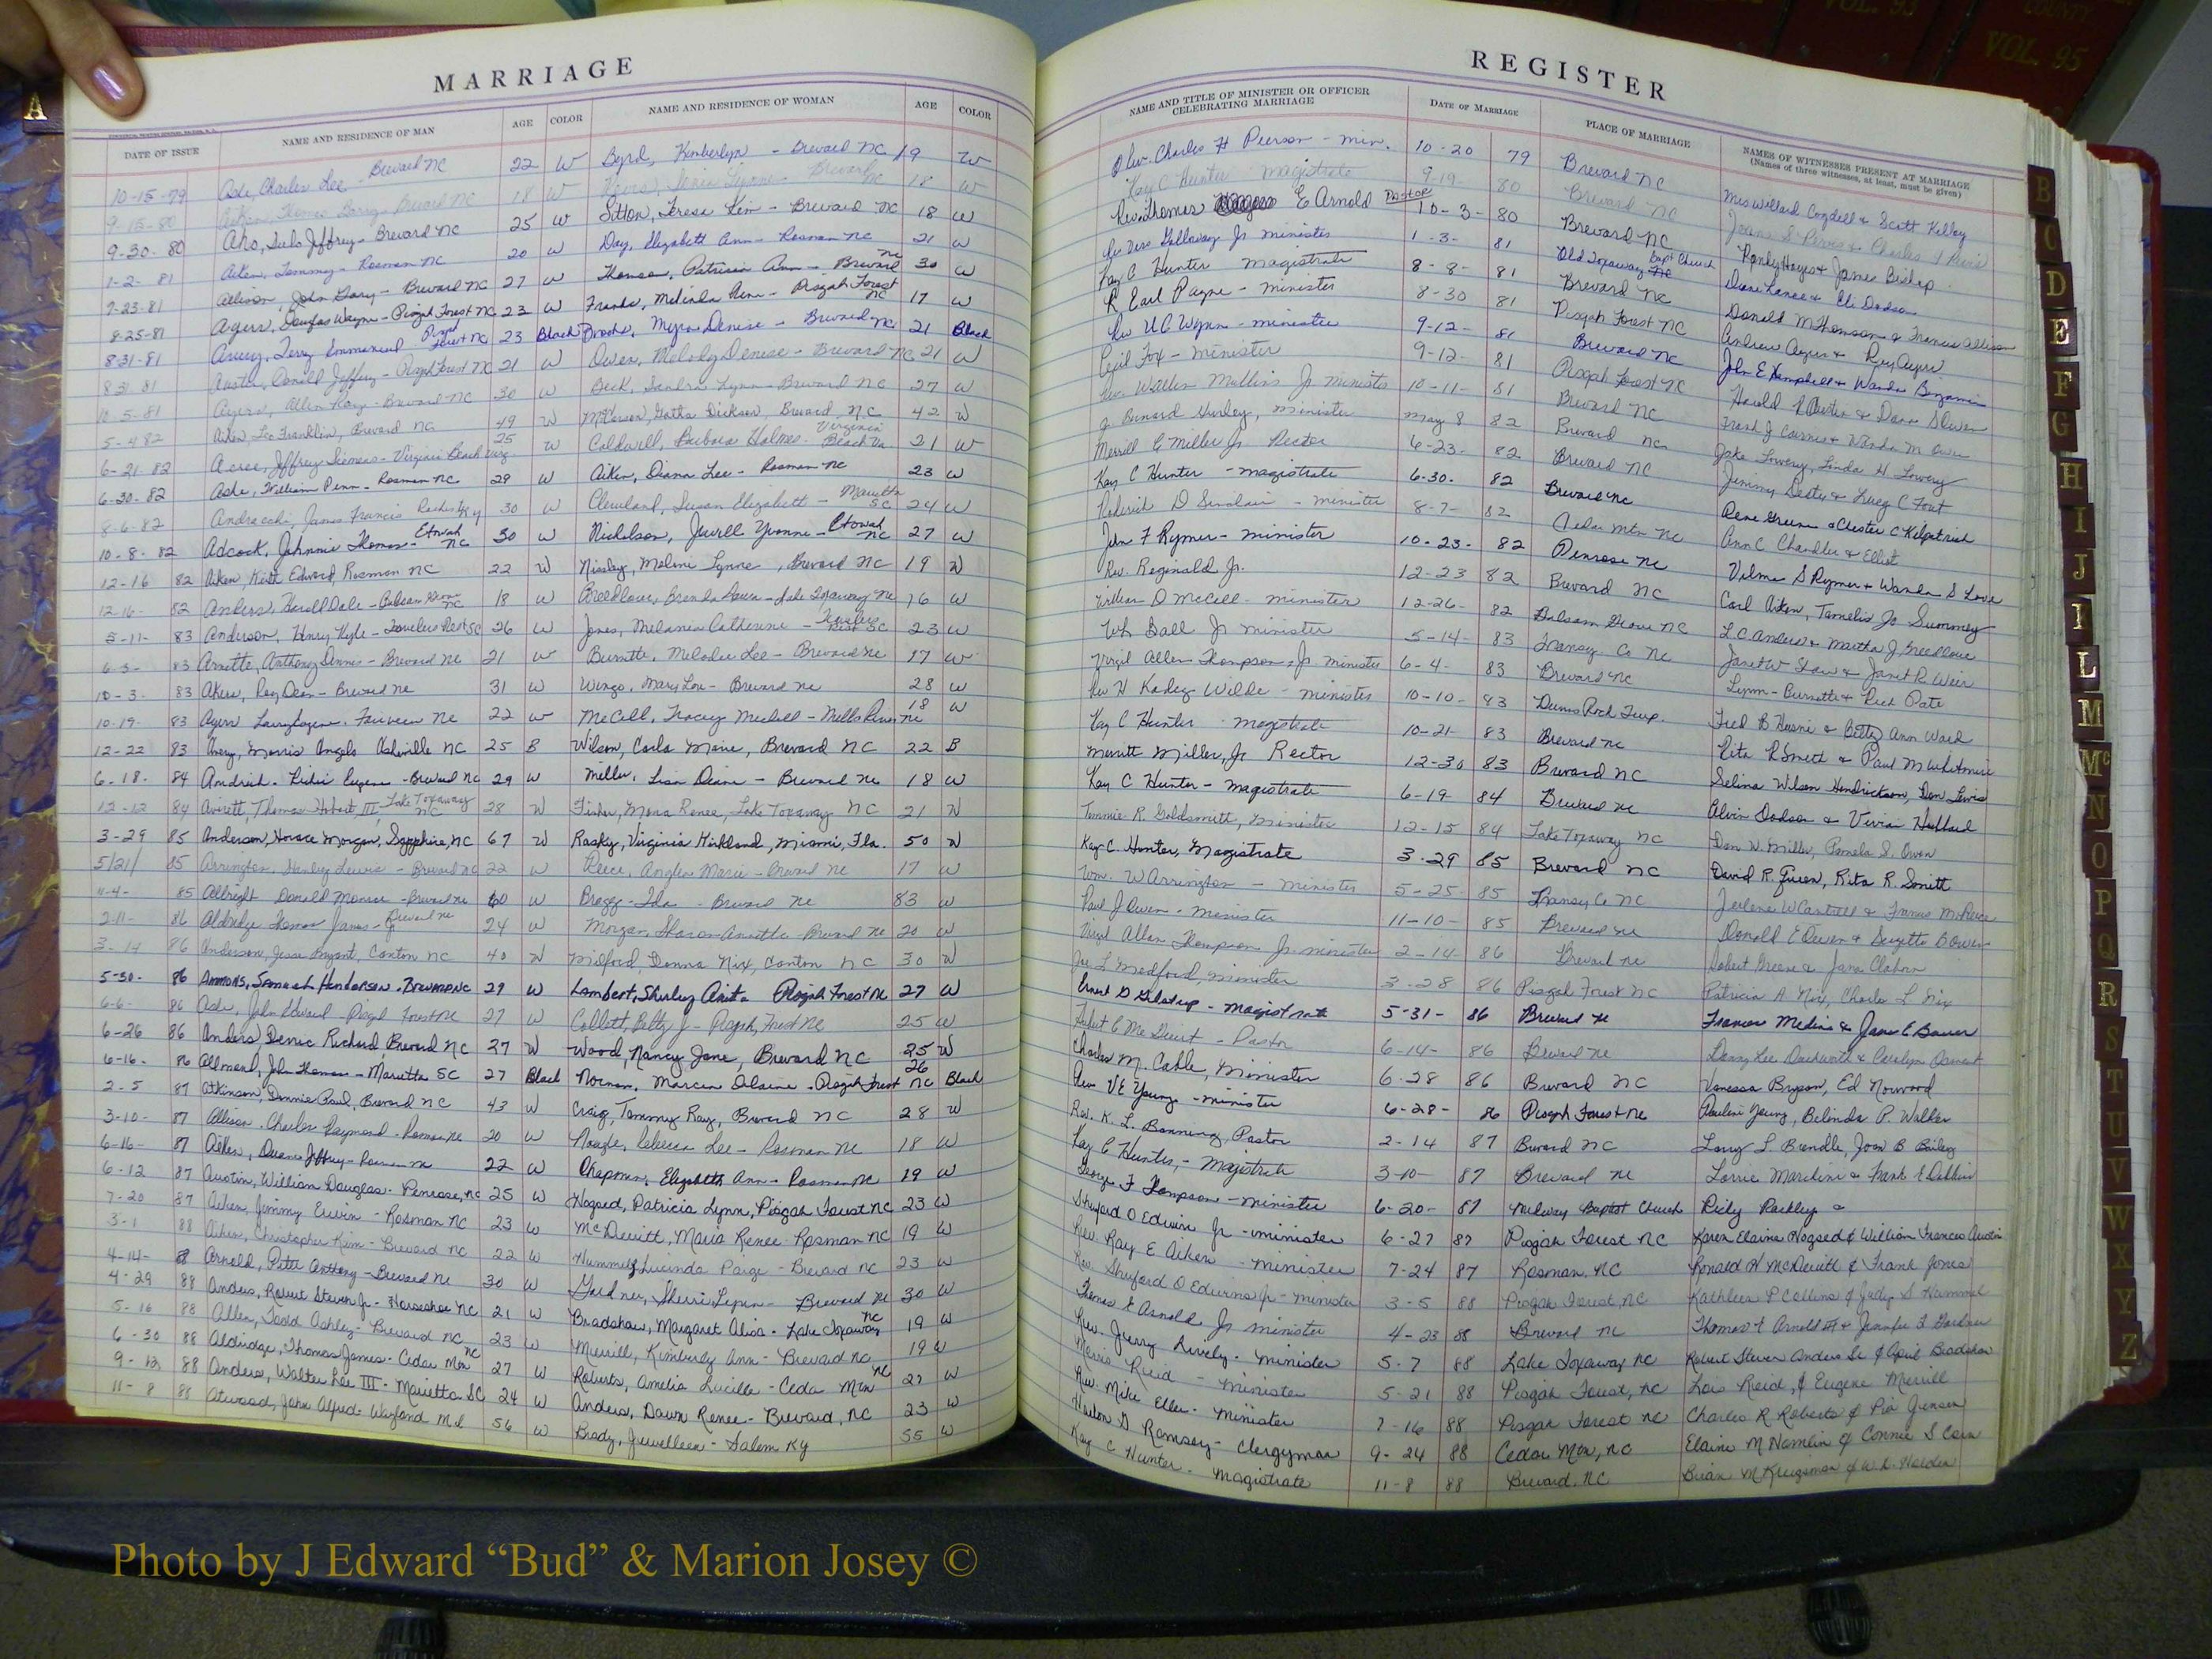 MARRIAGE
DATE OF ISSUE NAME AND RESIDENCE OF MAN AGE COLOR NAME AND RESIDENCE OF WOMAN AGE COLOR
10-15-79 Ashe, Charles Lee - Brevard NC 22 W Byrd, Kimberlyn - Brevard NC 19 W
9-15-80 Brevard NC 18 W Brevard NC 18 W
9-30-80 Jeffrey - Brevard NC 25 W Sitton, Teresa Kim - Brevard NC 18 W
1-2-81 Aiken, Tommy - Rosman NC 20 W Day, Elizabeth Ann - Rosman NC 21 W
7-23-81 Allison, John Gary - Brevard NC 27 W Thomson, Patricia Ann - Brevard NC 30 W
8-25-81 Ayers, Douglas Wayne - Pisgah Forest NC 23 W Franks, Melinda - Pisgah Forest NC 17 W
8-31-81 Avery, Terry Emmanuel Pisgah Forest NC 23 Black Brooks, Myra Denise - Brevard NC 21 Black
8-31-81 Austin, Donald Jeffrey - Pisgah Forest NC 21 W Owen, Melody Denise - Brevard NC 21 W
10-5-81 Ayers, Allen Ray - Brevard NC 30 W Beck, Sandra Lynn - Brevard NC 27 W
5-4-82 Aiken, Leo Franklin, Brevard NC 49 W Dickson, Brevard, N.C. 42 W
6-21-82 Acree, Jeffrey - Virginia Beach Virg 25 W Caldwell, Barbara Holmes - Virginia Beach Va 21 W
6-30-82 Ashe, William Penn - Rosman NC 29 W Aiken, Diana Lee - Rosman NC 23 W
8-6-82 James Francis Ky 30 W Cleveland, Susan Elizabeth - Marietta SC 24 W
10-8-82 Adcock, Johnnie Thomas - Etowah NC 30 W Nicholson, Jewell Yvonne - Etowah NC 27 W
12-16 82 Aiken, Keith Edward, Rosman NC 22 W Melani Lynne, Brevard NC 19 W
12-16- 82 Anders, Harold Dale - Balsam Grove NC 18 W Breedlove, Brenda - Lake Toxaway NC 16 W
5-11- 83 Anderson, Henry Kyle - Travelers Rest SC 26 W Jones, Melanie Catherine - Travelers Rest SC 23 W
6-3- 83 Arnette, Anthony Dennis - Brevard NC 21 W Burnette, Melodie Lee - Brevard NC 17 W
10-3- 83 Akers, Roy Dean - Brevard NC 31 W Wingo, Mary Lou - Brevard NC 28 W
10-19- 83 Ayers Larry Eugene - Fairview NC 22 W McCall, Tracey Michell - Mills River NC 18 W
12-22 83 Avery, Morris Angelo Asheville NC 25 B Wilson, Carla Marie, Brevard NC 22 B
6-18- 84 Eugene - Brevard NC 29 W Miller, Lisa Diane - Brevard NC 18 W
12-12 84 Averett, Thomas Hobart III, Lake Toxaway NC 28 W Fisher, Mona Renee, Lake Toxaway NC 21 W
3-29 85 Anderson, Horace Morgan, Sapphire, NC 67 W Rasky, Virginia Kirkland, Miami, Fla. 50 W
5/21/ 85 Arrington, Stanley Lewis - Brevard NC 22 W Reece, Angela Marie - Brevard NC 17 W
11-4- 85 Albright Donald Monroe - Brevard NC 60 W Bragg - Ida - Brevard NC 83 W
2-11- 86 Aldridge Thomas James - Jr Brevard NC 24 W Morgan, Sharon Annette - Brevard NC 20 W
3-14 86 Anderson, Jesse Bryant, Canton NC 40 W Medford, Donna Nix, Canton NC 30 W
5-30- 86 Ammons, Henderson - Brevard NC 29 W Lambert, Shirley Anita Pisgah Forest NC 27 W
6-6- 86 Ashe, John Edward - Pisgah Forest NC 27 W Collett, Betty J - Pisgah Forest NC 25 W
6-26 86 Anders, Derric Richard, Brevard NC 27 W Wood, Nancy Jane, Brevard NC 25 W
6-16- 86 Allmond, John Thomas - Marietta SC 27 Black Norman, Marcia Elaine - Pisgah Forest NC 26 Black
2-5 87 Atkinson, Donnie Paul, Brevard NC 43 W Craig, Tammy Ray, Brevard NC 28 W
3-10- 87 Allison - Charles Raymond - Rosman NC 20 W Rebecca Lee - Rosman NC 18 W
6-16- 87 Aiken, Duane Jeffrey - Rosman NC 22 W Chapman, Elizabeth Ann - Rosman NC 19 W
6-12 87 Austin, William Douglas - Penrose, NC 25 W Hogsed, Patricia Lynn, Pisgah Forest NC 23 W
7-20 87 Aiken, Jimmy Ervin - Rosman NC 23 W McDevitt, Maria Renee - Rosman NC 19 W
3-1 88 Aiken, Christopher Kim - Brevard NC 22 W Hummel, Lucinda Paige - Brevard NC 23 W
4-14- 8 Arnold, Peter Anthony - Brevard NC 30 W Gardner, Sherri Lynn - Brevard NC 30 W
4-29 88 Anders, Robert Steven Jr - Horseshoe NC 21 W Bradshaw, Margaret Alisa - Lake Toxaway NC 19 W
5-16 88 Allen, Todd Ashley - Brevard NC 23 W Merrill, Kimberly Ann - Brevard NC 19 W
6-30 88 Aldridge, Thomas James - Cedar Mtn NC 27 W Roberts, Amelia Lucille - Ceda Mtn NC 27 W
9-12 88 Anders, Walter Lee III - Marietta SC 24 W Anders, Dawn Renee - Brevard, NC 23 W
11-8 88 Atwood, John Alfred - Wayland Md 56 W Brady, Juvelleen - Salem Ky 55 W
REGISTER
NAME AND TITLE OF MINISTER OR OFFICER CELEBRATING MARRIAGE DATE OF MARRIAGE PLACE OF MARRIAGE NAMES OF WITNESSES PRESENT AT MARRIAGE
(Names of three witnesses, at least, must be given)
Rev. Charles H Pierson - Min. 10-20 79 Brevard NC Mrs Willard Cogdell & Scott Kelley
Kay C Hunter magistrate 9-19- 80 Brevard NC
Rev Thomas E Arnold Pastor 10-3- 80 Brevard NC Randy Hayes & James Bishop
Galloway Jr minister 1-3- 81 Old Toxaway Bapt Church Diane Lance & Eli Dodson
Kay C Hunter magistrate 8-8- 81 Brevard NC Donald M Thomson & Francis Allison
R Earl Payne - minister 8-30 81 Pisgah Forest NC Andrew Ayers & Ray Ayers
Rev U.C. Wynn - minister 9-12- 81 Brevard NC John E Hemphill & Wanda Benjamin
Cecil Fox - Minister 9-12- 81 Pisgah Forest NC Harold R Austin & Owen
Rev. Walter Mullins Jr minister 10-11- 81 Brevard NC Frank J & M Owen
J. Bernard Hurley, minister May 8 82 Brevard NC Jake Lowery, Linda H. Lowery
Merrill C Miller Jr. Rector 6-23- 82 Brevard NC Jimmy & C Fout
Kay C Hunter - magistrate 6-30- 82 Brevard NC Dene Greene & Chester C Kilpatrick
Roderick D Sinclair - minister 8-7- 82 Cedar Mtn NC Ann C Chandler & Elliot
John F Rymer - minister 10-23- 82 Penrose NC Velma S Rymer & Wanda S Love
Rev. Reginald Jr. 12-23 82 Brevard NC Carl Aiken, Jo Summey
William D McCall - minister 12-26- 82 Balsam Grove NC L C Anders & Martha J Breedlove
Wh Ball Jr minister 5-14- 83 Transy. Co NC Janet W Shaw & Janet R Weir
Virgil Allen Thompson, Jr. minister 6-4- 83 Brevard NC Lynn - Burnette & Rick Pate
Rev H Kadez Wilde - minister 10-10- 83 Dunns Rock Twp. Fred B & Betty Ann Ward
Kay C Hunter - magistrate 10-21- 83 Brevard NC Rita R Smith & Paul M Whitmire
Merritt Miller, Jr Rector 12-30 83 Brevard NC Selina Wilson Hendrickson, Don Lewis
Kay C Hunter - Magistrate 6-19 84 Brevard NC Alvin Dodson & Vivian Hubbard
Tommie R. Goldsmith, Minister 12-15 84 Lake Toxaway NC Don W. Miller, Pamela S. Owen
Kay C. Hunter, Magistrate 3-29 85 Brevard NC David R. Green, Rita R. Smith
Wm. W Arrington - minister 5-25- 85 Transy Co NC Jerlene W Cantrell & Francis M Reece
Paul J Owen - minister 11-10- 85 Brevard NC Donald E Owen & B Owen
Virgil Allen Thompson Jr minister 2-14- 86 Brevard NC Robert Greene &
Joe L Medford, minister 3-28 86 Pisgah Forest NC Patricia A Nix, Charles L Nix
Ernest D Gilstrap - Magistrate 5-31- 86 Brevard NC Frances Medina &
Pastor 6-14- 86 Brevard NC
Charles M. Cable, Minister 6-28 86 Brevard NC Vanessa Bryson, Ed Norwood
Rev VE Young - minister 6-28- 86 Pisgah Forest NC Young, Belinda P. Walker
Rev. K. L. Banning, Pastor 2-14 87 Brevard NC Larry L Brendle, Joan B Bailey
Kay C Hunter, - Magistrate 3-10- 87 Brevard NC
George F Thompson - Minister 6-20- 87 Midway Baptist Church Ricky &
Shuford O Edwins Jr - minister 6-27 87 Pisgah Forest NC Karen Elaine Hogsed & William Frances Austin
Rev. Ray E Aiken - minister 7-24 87 Rosman, NC Ronald H McDevitt & Frank Jones
Rev. Shuford O Edwins Jr - minister 3-5 88 Pisgah Forest, NC Kathleen P Collins & Judy S Hummel
Thomas E Arnold Jr minister 4-23 88 Brevard NC Thomas Arnold III & Jennifer Gardner
Rev. Jerry Lively - Minister 5-7 88 Lake Toxaway NC Robert Steven Anders Sr & April Bradshaw
Morris Reid - Minister 5-21 88 Pisgah Forest, NC Lois Reid & Eugene Merrill
Rev. Mike Eller - Minister 7-16 88 Pisgah Forest NC Charles R Roberts & Jensen
Ramsey - Clergyman 9-24 88 Cedar Mtn, NC Elaine M Hamlin & Connie S Cain
Kay C Hunter - Magistrate 11-8 88 Brevard, NC Brian M & W.L. Harden
A
B
C
D
E
F
G
H
I
J
L
M
Mc
N
O
P
Q
R
S
T
U
V
W
X
Y
Z
VOL. 93
COUNTY
VOL. 95
Photo by J Edward “Bud” & Marion Josey ©